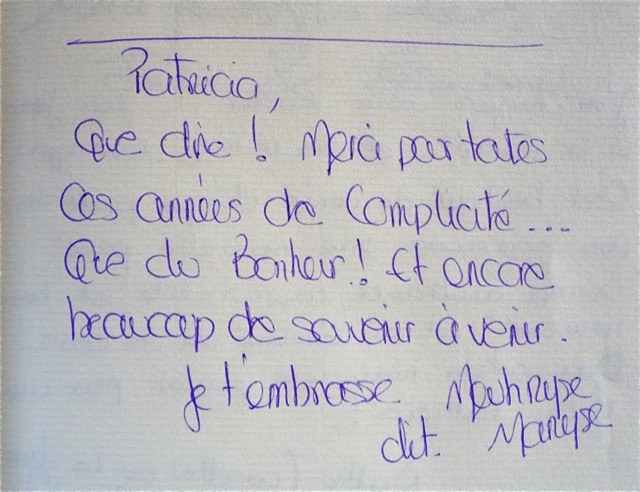 Patricia,
Que dire ! Merci pour toutes
Ces années de Complicité...
Que du Bonheur ! Et encore
beaucoup de souvenir à venir.
Je t'embrasse
dit. Maryse